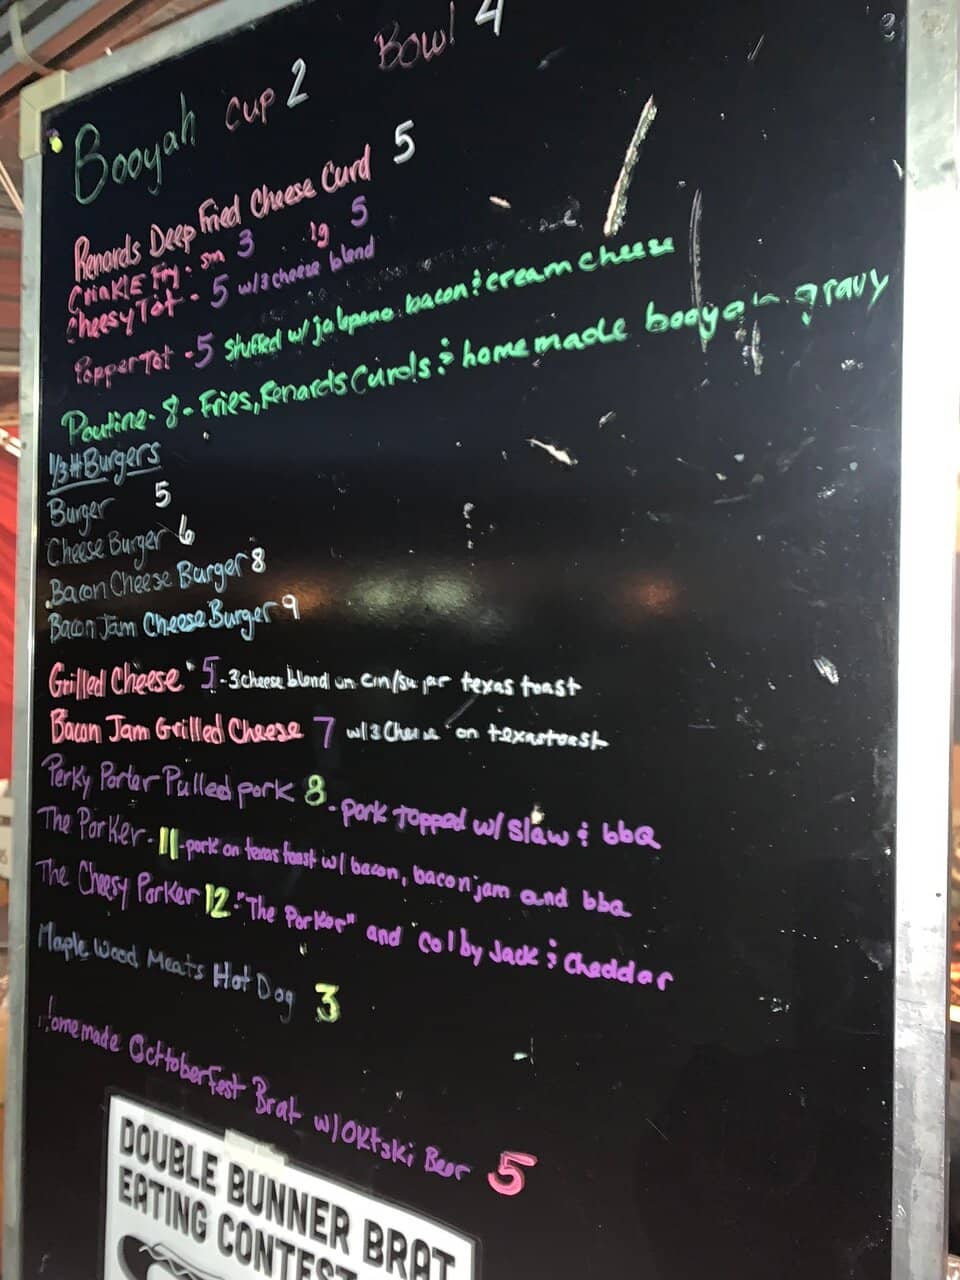 Booyah Cup 2 Bowl 4
Renards Deep Fried Cheese Curd 5
Crinkle Fry - sm 3 lg 5
Cheesy Tot - 5 w/3 cheese blend
Popper Tot - 5 Stuffed w/jalapeno bacon & cream cheese
Poutine - 8 - Fries, Renards Curds & homemade booyah gravy
1/3 # Burgers
Burger 5
Cheese Burger 6
Bacon Cheese Burger 8
Bacon Jam Cheese Burger 9
Grilled Cheese 5 - 3 cheese blend on cin/sugar texas toast
Bacon Jam Grilled Cheese 7 w/3 Cheese on texas toast
Perky Porter Pulled pork 8 - pork topped w/ slaw & bbq
The Porker - 11 - pork on texas toast w/ bacon, bacon jam and bbq
The Cheesy Porker 12 - "The Porker" and colby Jack & Cheddar
Maple Wood Meats Hot Dog 3
Homemade Octtoberfest Brat w/ Oktski Beer 5
DOUBLE BUNNER BRAT
EATING CONTEST